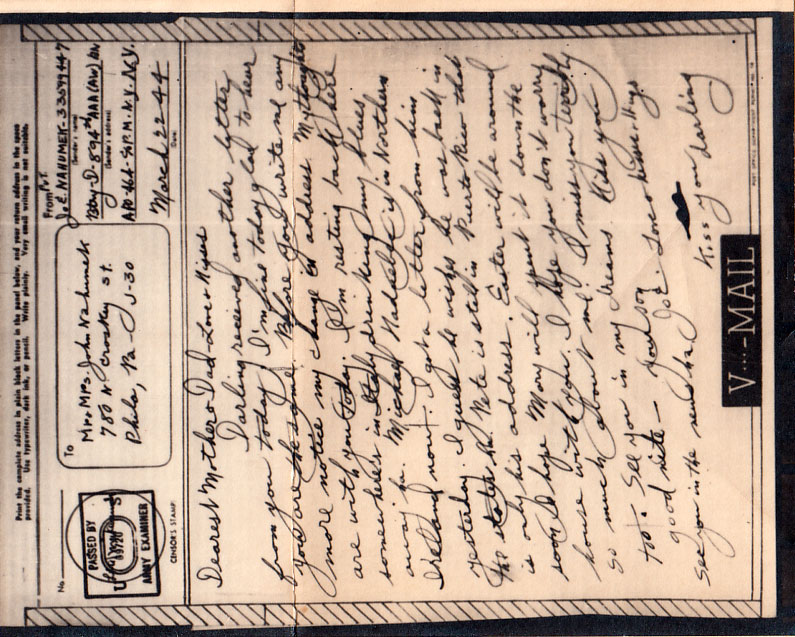 Print the complete address in plain block letters in the panel below, and your return address in the space
provided. Use typewriter, dark ink, or pencil. Write plainly. Very small writing is not suitable.
No.
PASSED BY
ARMY EXAMINER
CENSOR'S STAMP
To
Mr & Mrs. John Nahumek
780 N Croskey St.
Phila, Pa - U-30
From
Pvt.
J.E. NAHUMEK - 33599447
(Sender's name)
Btry-D-894th AAA (AW) BN
(Sender's address)
APO 464 - % P.M. N.Y. N.Y.
March 22-44
(Date)
Dearest Mother & Dad - Love & Kisses
Darling received another letter
from you today. I'm fine today glad to hear
you are the same. Before you write me any
more notice my change in address. My thoughts
are with you today. I'm resting back here
somewheres in Italy drinking my blues
away ha. Michael is in Northern
Ireland now. I got a letter from him
yesterday. I guess he wishes he was back in
the states ha. Pete is still in Puerto Rico that
is only his address. Easter will be around
soon I hope Mary will spent it down the
house with you. I hope you don't worry
so much about me. I miss you terribly
too. See you in my dreams Kiss you
good nite - Your son
Joe. Love & kisses & hugs
See you in the news ha.
Kiss you darling
V...-MAIL